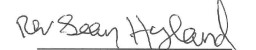 Rev Sean Hyland